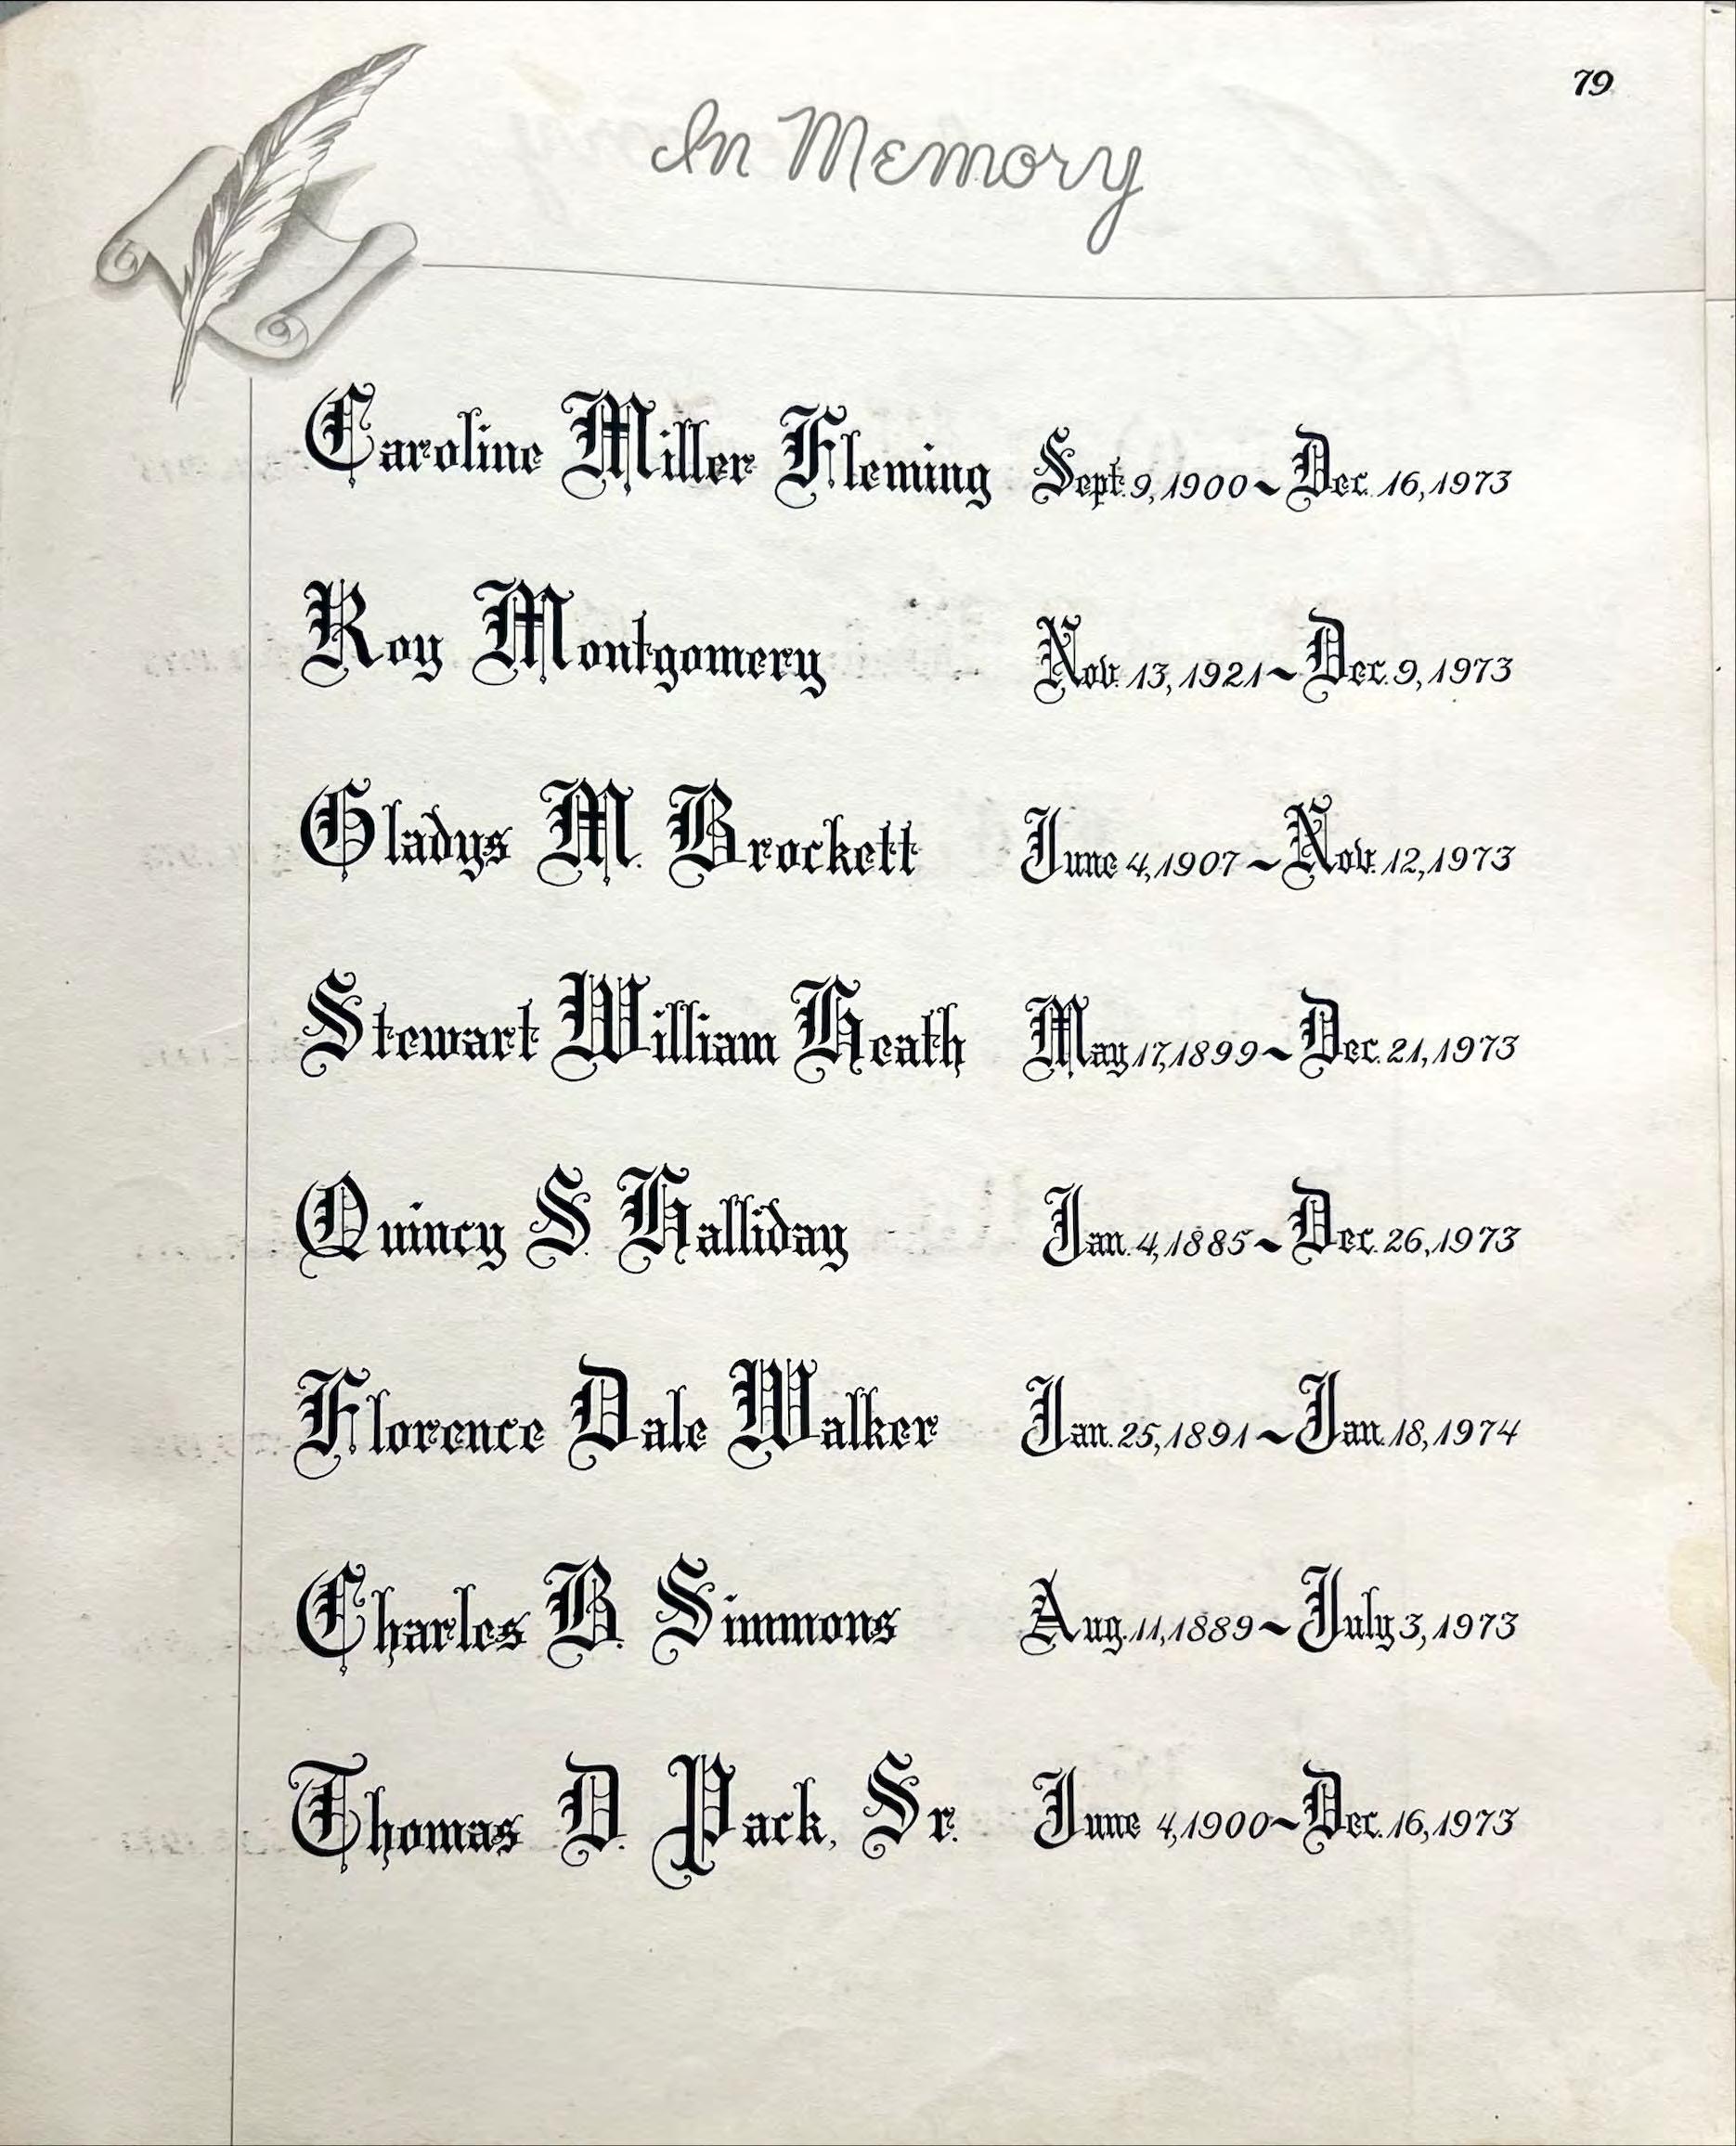 79
In Memory
Caroline Miller Fleming Sept. 9, 1900 ~ Dec. 16, 1973
Roy Montgomery Nov. 13, 1921 ~ Dec. 9, 1973
Gladys M. Brockett June 4, 1907 ~ Nov. 12, 1973
Stewart William Heath May 17, 1899 ~ Dec. 21, 1973
Quincy S. Halliday Jan. 4, 1885 ~ Dec. 26, 1973
Florence Dale Walker Jan. 25, 1891 ~ Jan. 18, 1974
Charles B. Simmons Aug. 11, 1889 ~ July 3, 1973
Thomas D. Pack, Sr. June 4, 1900 ~ Dec. 16, 1973